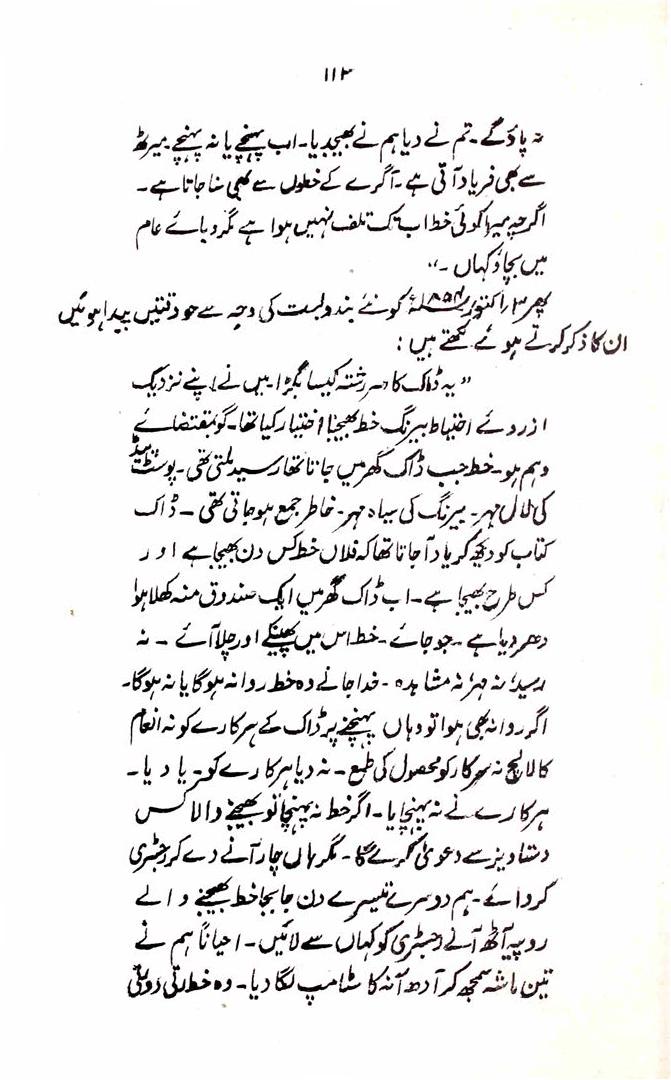 ۱۱۳
نہ پاؤ گے۔ تم نے دیا ہم نے بھیجدیا۔ اب پہنچے یا نہ پہنچے۔ میرٹھ
سے بھی فریاد آتی ہے۔ آگرے کے خطوں سے بھی سنا جاتا ہے۔
اگرچہ میرا کوئی خط اب تک تلف نہیں ہوا ہے مگر وبائے عام
میں بچاؤ کہاں ۔"
پھر ۳؍اکتوبر ۱۸۵۴ء کو نئے بندوبست کی وجہ سے جو دقتیں پیدا ہوئیں
ان کا ذکر کرتے ہوئے لکھتے ہیں :
"یہ ڈاک کا سررشتہ کیسا بگڑا۔ میں نے اپنے نزدیک
از روئے احتیاط بیرنگ خط بھیجنا اختیار کیا تھا۔ گو بمقتضائے
وہم ہو۔ خط جب ڈاک گھر میں جاتا تھا رسید ملتی تھی۔ پوسٹ پیڈ
کی لال مہر۔ بیرنگ کی سیاہ مہر۔ خاطر جمع ہو جاتی تھی ۔ ڈاک
کتاب کو دیکھ کر یاد آ جاتا تھا کہ فلاں خط کس دن بھیجا ہے اور
کس طرح بھیجا ہے۔ اب ڈاک گھر میں ایک صندوق منہ کھلا ہوا
دھر دیا ہے ۔ جو جائے ۔ خط اس میں پھینکے اور چلا آئے ۔ نہ
رسید نہ مہر نہ مشاہدہ ۔ خدا جانے وہ خط روانہ ہوگا یا نہ ہوگا۔
اگر روانہ بھی ہوا تو وہاں پہنچنے پر ڈاک کے ہرکارے کو نہ انعام
کا لالچ نہ سرکار کو محصول کی طمع ۔ نہ دیا ہرکارے کو۔ یا دیا ۔
ہرکارے نے نہ پہنچایا ۔ اگر خط نہ پہنچا تو بھیجنے والا کس
دستاویز سے دعویٰ کرے گا ۔ مگر ہاں چار آنے دے کر رجسٹری
کروائے ۔ ہم دوسرے تیسرے دن جا بجا خط بھیجنے والے
روپیہ آٹھ آنے رجسٹری کو کہاں سے لائیں ۔ احیاناً ہم نے
تین ماشہ سمجھ کر آدھ آنہ کا سٹامپ لگا دیا ۔ وہ خط رتی دو رتی